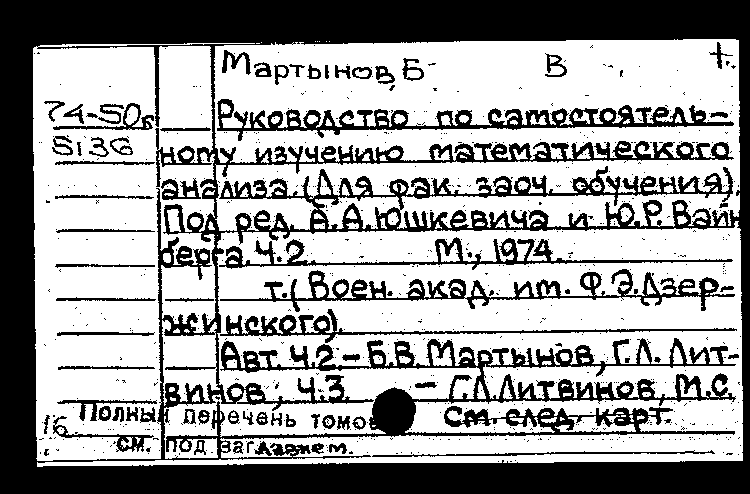 Мартынов, Б В т.
74-50к Руководство по самостоятель-
5136 ному изучению математического
анализа. (Для фак. заоч. обучения).
Под ред. А.А.Юшкевича и Ю.Р. Вайн
берга. Ч.2. М., 1974.
т. (Воен. акад. им. Ф.Э.Дзер-
жинского).
Авт. Ч.2.- Б.В. Мартынов, Г.Л. Лит-
винов; Ч.3. - Г.Л.Литвинов, М.С.
16 Полный перечень томов См. след. карт.
см. под заглавием.